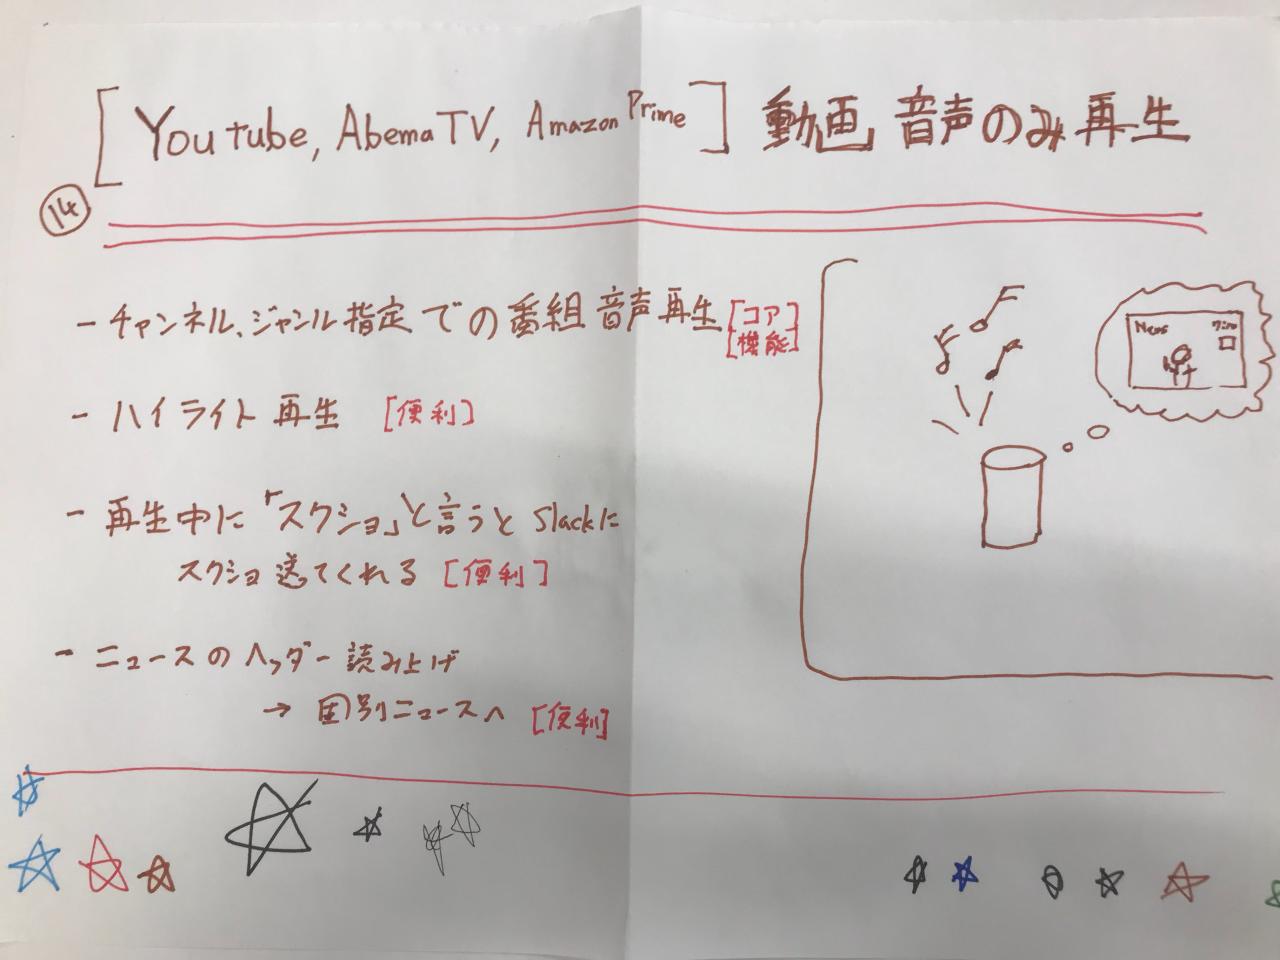 [Youtube, Abema TV, Amazon Prime] 動画 音声のみ再生
14
- チャンネル、ジャンル指定での番組音声再生 [コア機能]
- ハイライト再生 [便利]
- 再生中に「スクショ」と言うと Slackに
スクショ送ってくれる [便利]
- ニュースのヘッダー読み上げ
→ 個別ニュースへ [便利]
News